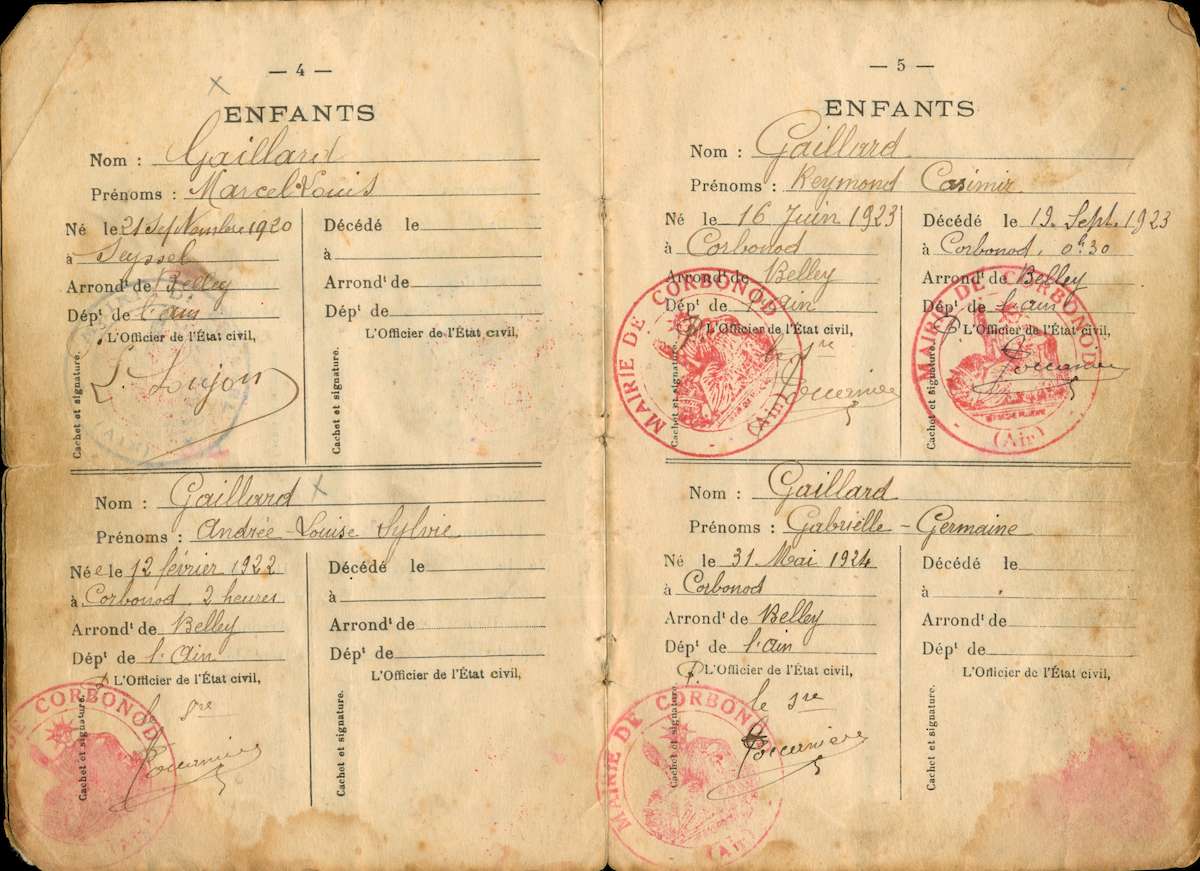 — 4 —
ENFANTS
Nom : Gaillard
Prénoms : Marcel Louis
Né le 21 Septembre 1920
à Seyssel
Arrondt de Belley
Dépt de l'ain
L'Officier de l'État civil,
Cachet et signature.
Décédé le
à
Arrondt de
Dépt de
L'Officier de l'État civil,
Cachet et signature.
Nom : Gaillard
Prénoms : Andrée-Louise Sylvie
Née le 12 février 1922
à Corbonod 2 heures
Arrondt de Belley
Dépt de l'Ain
P. L'Officier de l'État civil,
le sre
Cachet et signature.
MAIRIE DE CORBONOD
(Ain)
Décédé le
à
Arrondt de
Dépt de
L'Officier de l'État civil,
Cachet et signature.
— 5 —
ENFANTS
Nom : Gaillard
Prénoms : Reymond Casimir
Né le 16 Juin 1923
à Corbonod
Arrondt de Belley
Dépt de l'Ain
P. L'Officier de l'État civil,
le sre
Cachet et signature.
MAIRIE DE CORBONOD
(Ain)
Décédé le 19. Sept. 1923
à Corbonod, 0h30
Arrondt de Belley
Dépt de l'ain
P. L'Officier de l'État civil,
Cachet et signature.
MAIRIE DE CORBONOD
(Ain)
Nom : Gaillard
Prénoms : Gabrielle-Germaine
Né le 31 Mai 1924
à Corbonod
Arrondt de Belley
Dépt de l'ain
P. L'Officier de l'État civil,
le sre
Cachet et signature.
MAIRIE DE CORBONOD
(Ain)
Décédé le
à
Arrondt de
Dépt de
L'Officier de l'État civil,
Cachet et signature.